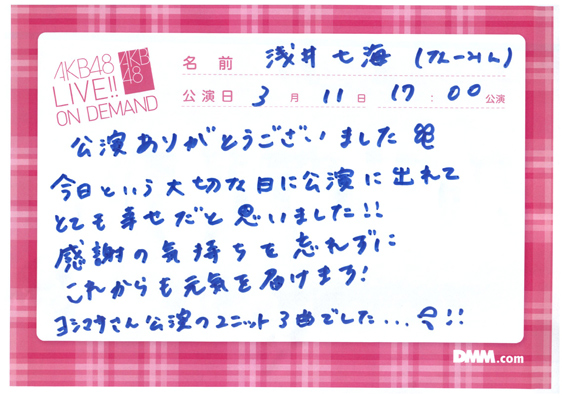 AKB48
LIVE!!
ON DEMAND
AKB
48
名前 浅井七海 (なーみん)
公演日 3月11日 17:00公演
公演ありがとうございました
今日という大切な日に公演に出れて
とても幸せだと思いました!!
感謝の気持ちを忘れずに
これからも元気を届けます!
ヨシマサさん公演のユニット3曲でした...!!
DMM.com